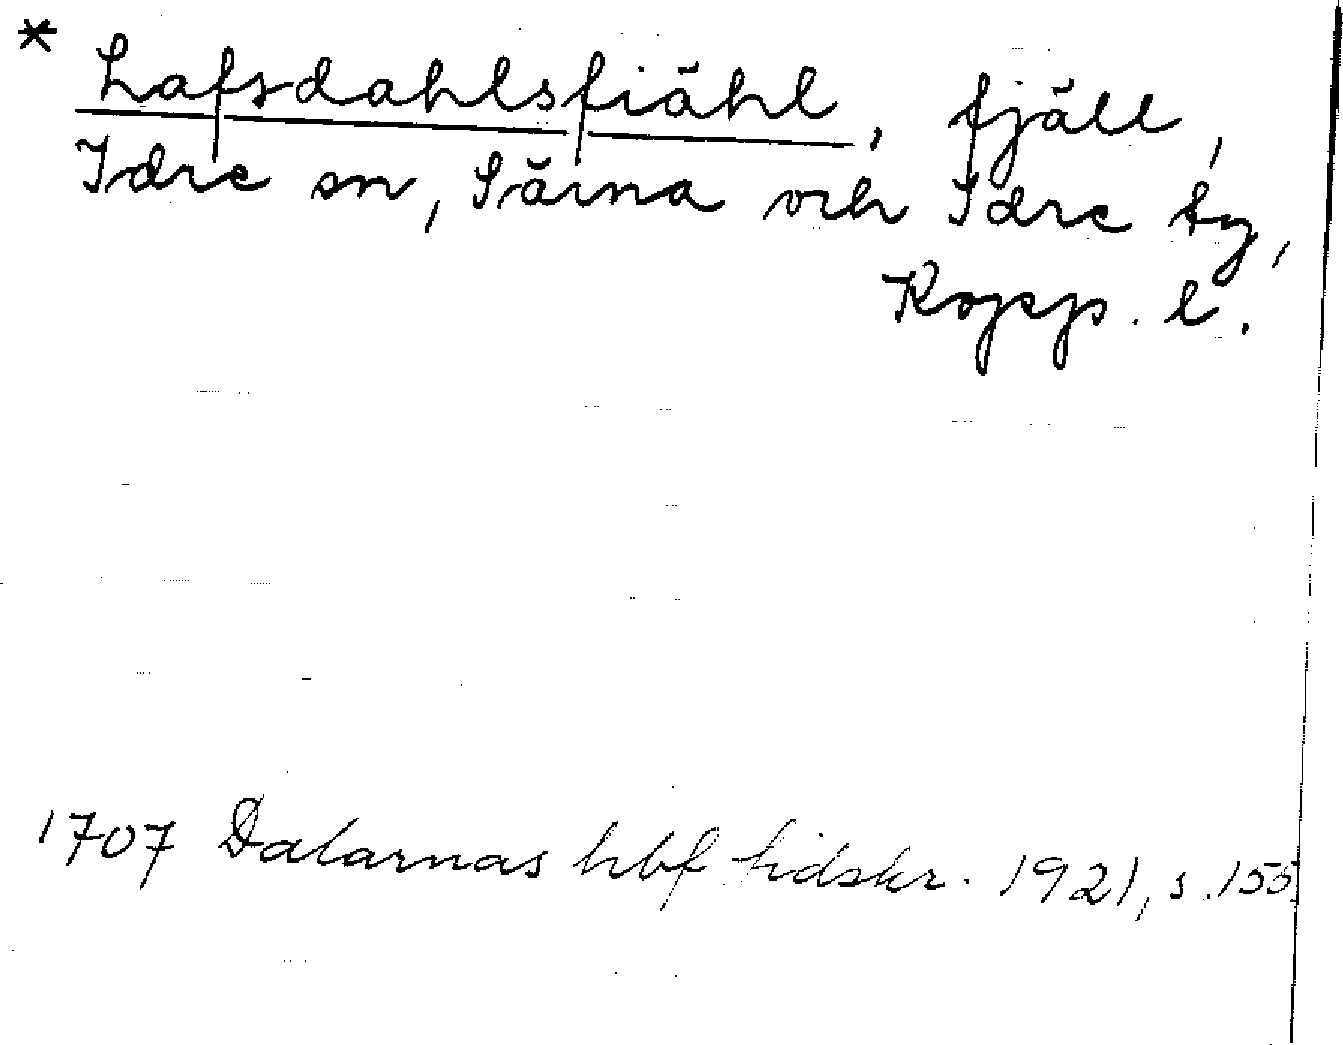 * Lafsdahlsfiähl, fjäll,
Idre sn, Särna och Idre tg,
Kopp. l.
1707 Dalarnas hbf tidskr. 1921, s. 155.